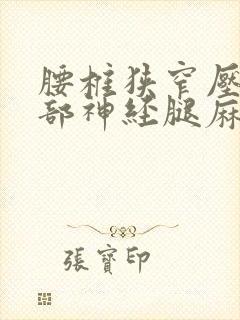 腰椎狹窄壓
部神经腿麻
張寶印